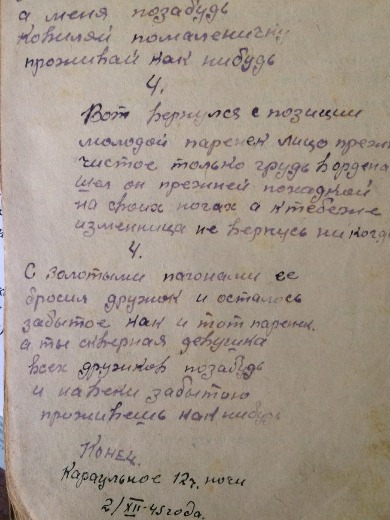 а меня позабудь
ковыляй помаленичку
проживай как нибудь
4.
Вот вернулся с позиции
молодой паренек лицо преж
чистое только грудь в ордена
шел он прежней походкой
на своих ногах а к тебе же
изменница не вернусь ни когд
4.
С золотыми пагонами ее
бросил дружок и осталось
забытое как и тот паренек.
а ты скверная девушка
всех дружков позабудь
и на веки забытою
проживешь как нибудь
Конец.
Караульное 12ч. ночи
2/XII-45 года.